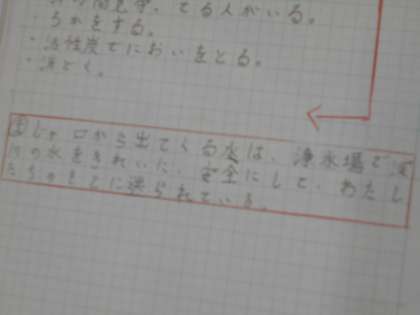 見守ってる人がいる。
ろかをする。
・活性炭でにおいをとる。
・消どく。
まじゃ口から出てくる水は、浄水場で
の水をきれいに、安全にして、わたし
たちのもとに送られている。